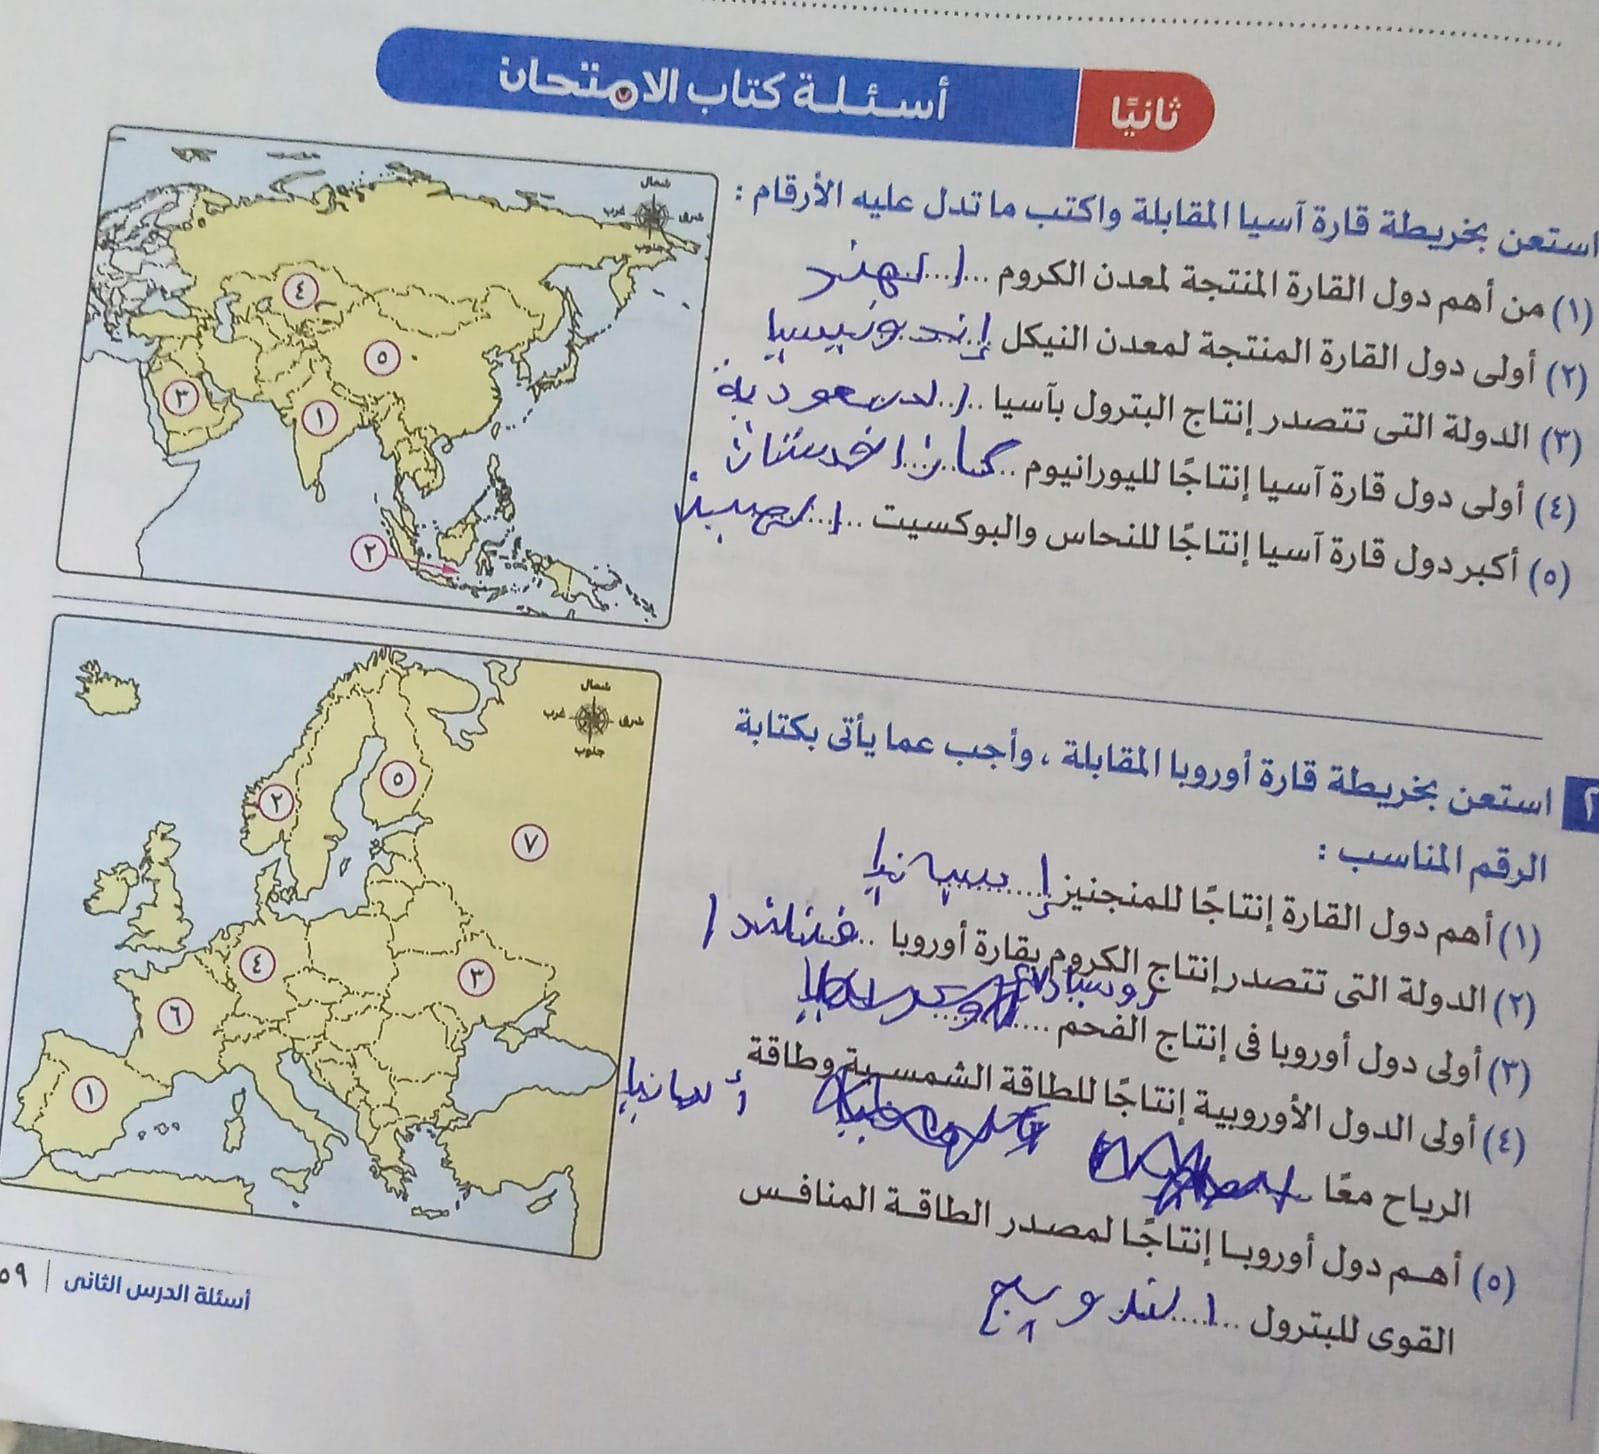 ثانيًا أسئلة كتاب الامتحان
استعن بخريطة قارة آسيا المقابلة واكتب ما تدل عليه الأرقام :
(١) من أهم دول القارة المنتجة لمعدن الكروم ..... الهند
(٢) أولى دول القارة المنتجة لمعدن النيكل إندونيسيا
(٣) الدولة التى تتصدر إنتاج البترول بآسيا ..... السعودية
(٤) أولى دول قارة آسيا إنتاجًا لليورانيوم ..... كازاخستان
(٥) أكبر دول قارة آسيا إنتاجًا للنحاس والبوكسيت ..... الصين
شمال
شرق
غرب
جنوب
٤
٥
٣
١
٢
٢ استعن بخريطة قارة أوروبا المقابلة ، وأجب عما يأتى بكتابة
الرقم المناسب :
(١) أهم دول القارة إنتاجًا للمنجنيز إسبانيا
(٢) الدولة التى تتصدر إنتاج الكروم بقارة أوروبا ..... فنلندا
(٣) أولى دول أوروبا فى إنتاج الفحم ..... روسيا
(٤) أولى الدول الأوروبية إنتاجًا للطاقة الشمسية وطاقة
الرياح معًا ..... ألمانيا
(٥) أهم دول أوروبا إنتاجًا لمصدر الطاقة المنافس
القوى للبترول ..... النرويج
شمال
شرق
غرب
جنوب
٥
٢
٧
٤
٣
٦
١
أسئلة الدرس الثانى | ٥٩